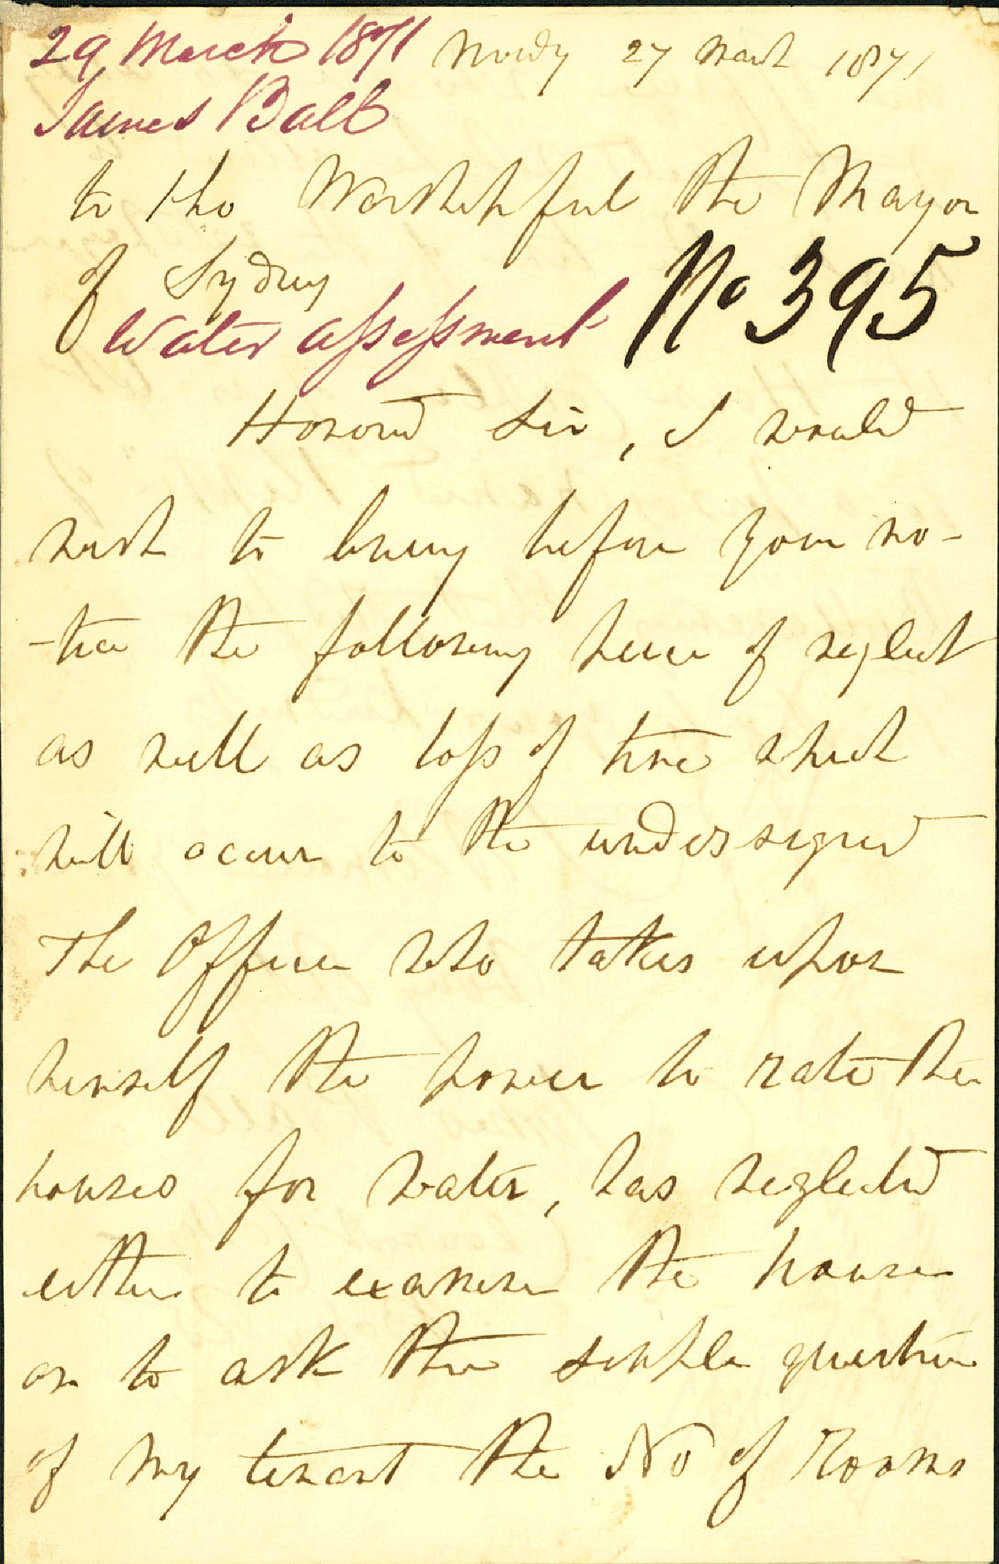 29 March 1871 27 March 1871
James Ball
to the Worshipful the Mayor
of Sydney
Water assessment No 395
Honord Sir, I would
wish to bring before your no-
-tice the following piece of neglect
as well as loss of time which
will occur to the undersigned
The Officer who takes upon
himself the power to rate the
houses for water, has neglected
either to examine the house
or to ask the simple question
of my tenant the No of Rooms